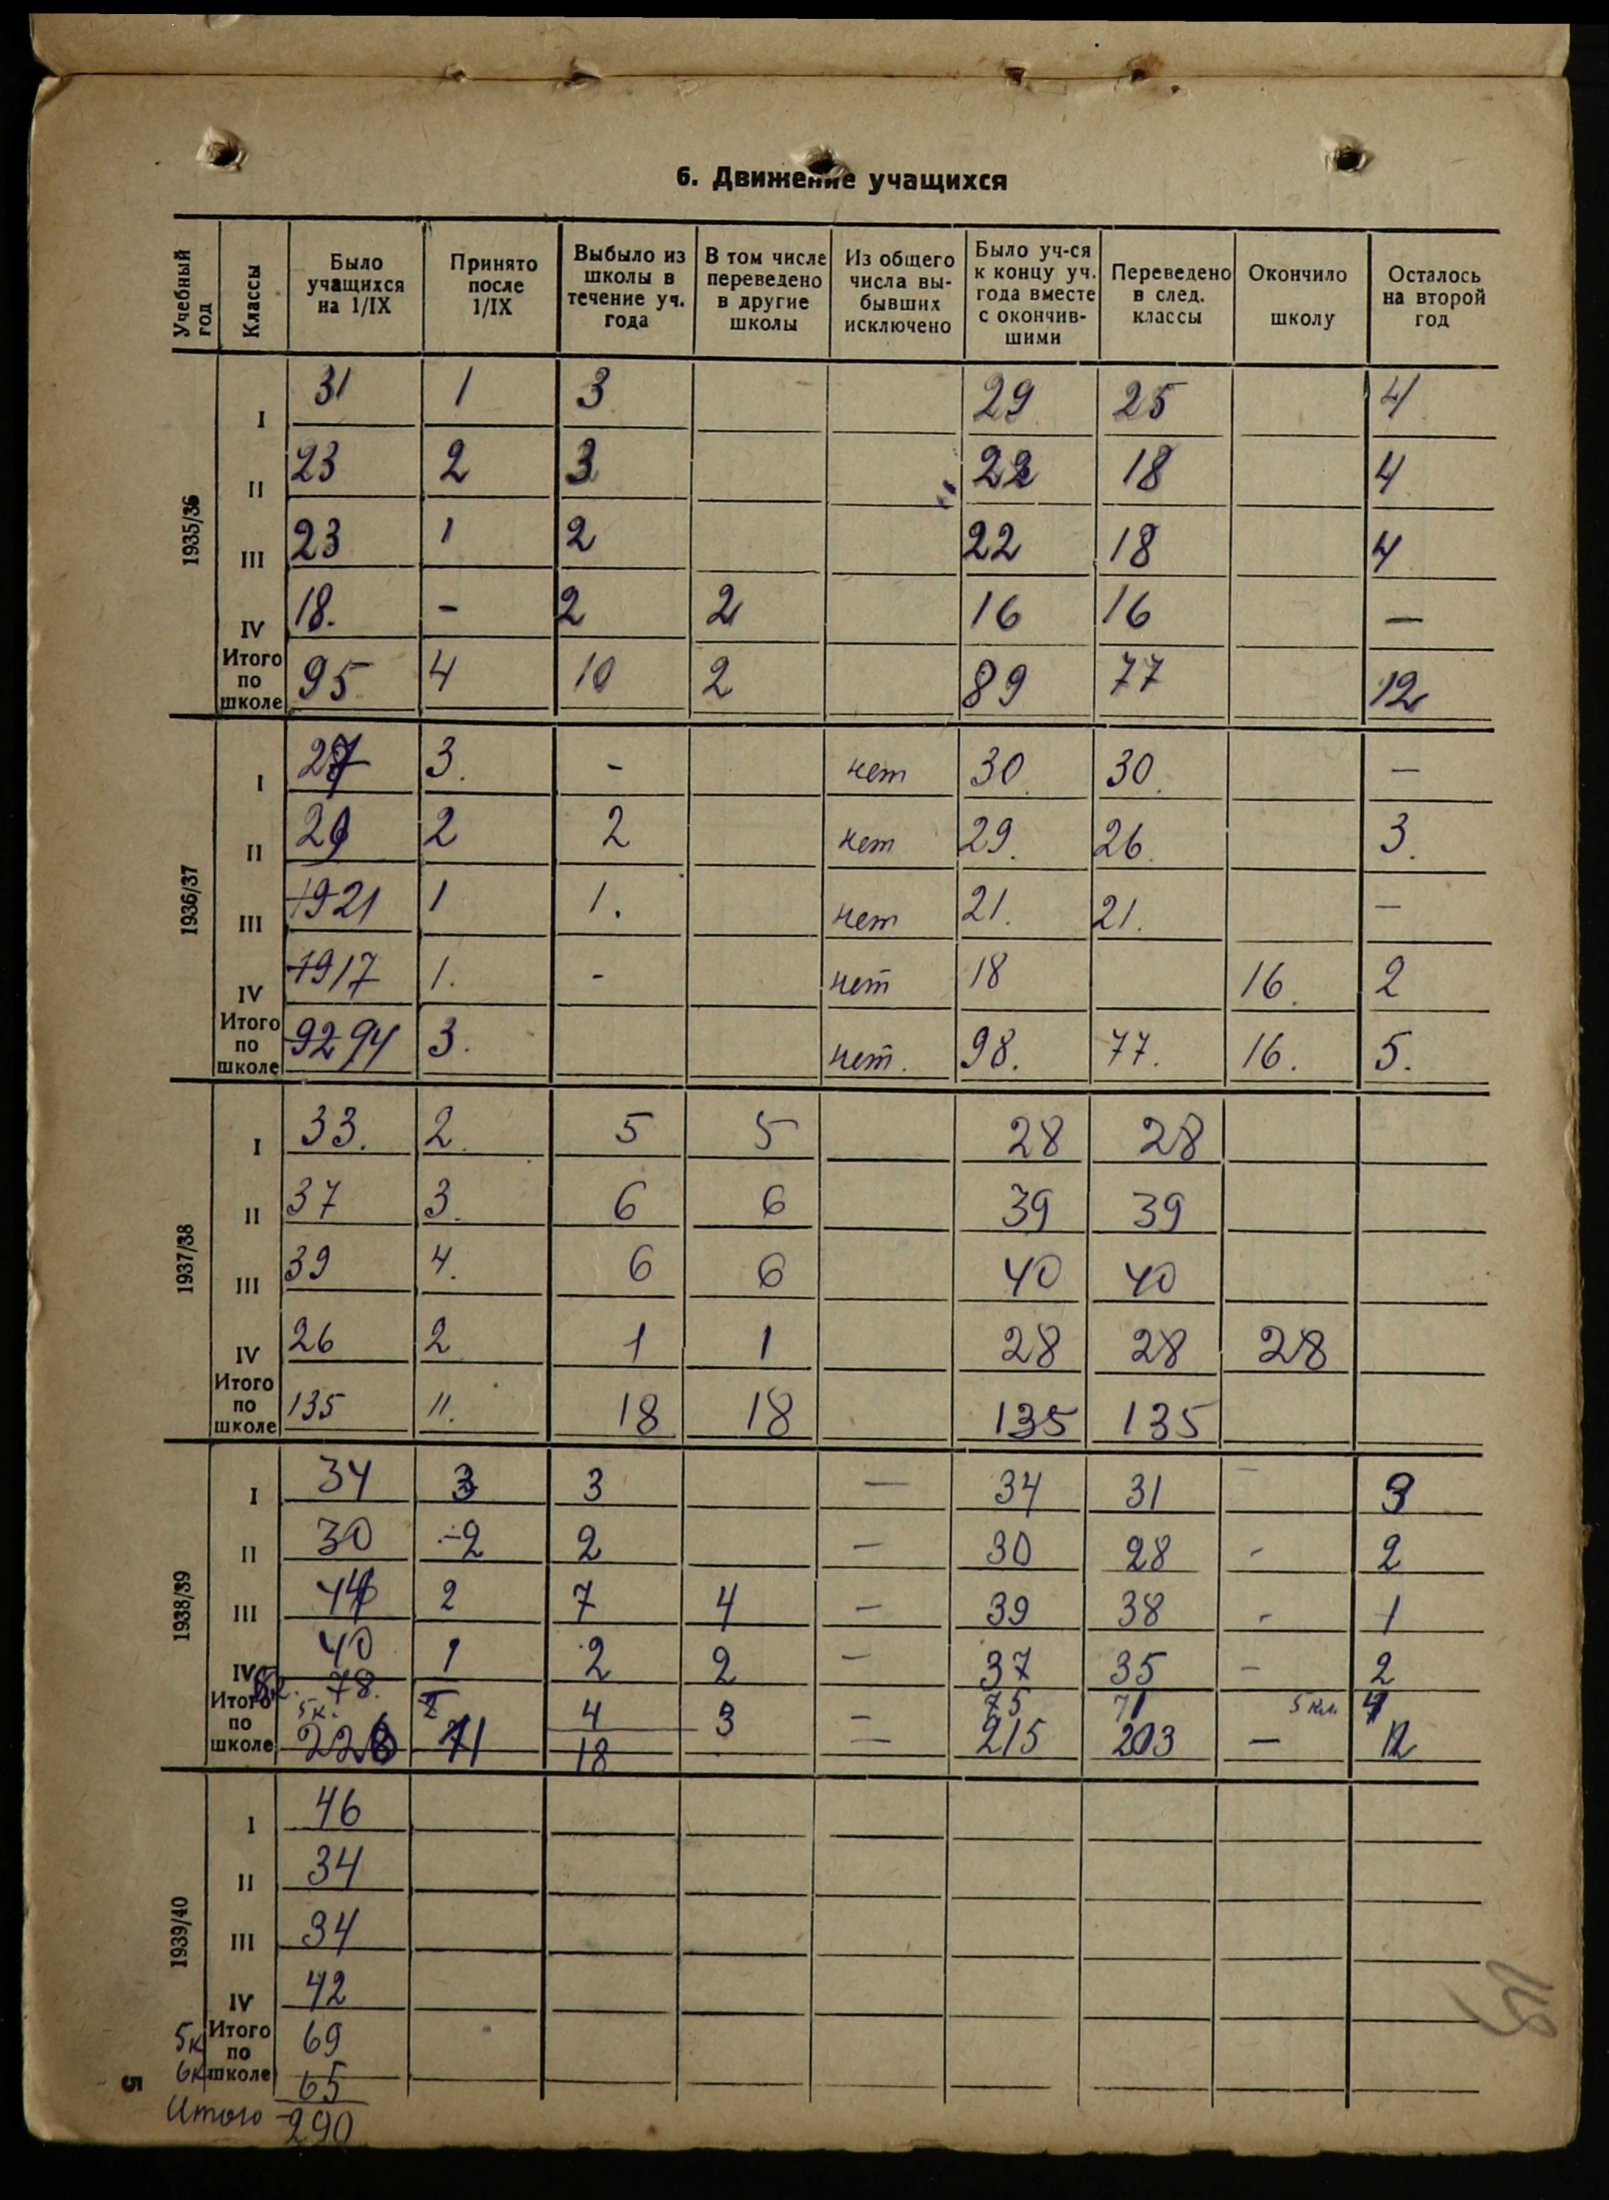 6. Движение учащихся
Учебный год | Классы | Было учащихся на 1/IX | Принято после 1/IX | Выбыло из школы в течение уч. года | В том числе переведено в другие школы | Из общего числа вы-бывших исключено | Было уч-ся к концу уч. года вместе с окончив-шими | Переведено в след. классы | Окончило школу | Осталось на второй год
1935/36
I 31 1 3 29 25 4
II 23 2 3 22 18 4
III 23 1 2 22 18 4
IV 18. - 2 2 16 16 —
Итого по школе 95 4 10 2 89 77 12
1936/37
I 27 3. - нет 30. 30. —
II 29 2 2 нет 29. 26. 3.
III 19 21 1 1. нет 21. 21. —
IV 19 17 1. - нет 18 16. 2
Итого по школе 92 94 3. нет. 98. 77. 16. 5.
1937/38
I 33. 2. 5 5 28 28
II 37 3. 6 6 39 39
III 39 4. 6 6 40 40
IV 26 2 1 1 28 28 28
Итого по школе 135 11. 18 18 135 135
1938/39
I 34 3 3 — 34 31 - 3
II 30 -2 2 — 30 28 - 2
III 2 7 4 — 39 38 - 1
IV 40 1 2 2 — 37 35 - 2
5к. 78. 4 3 — 75 71 5 кл. 4
Итого по школе 226 11 18 — 215 203 — 12
1939/40
I 46
II 34
III 34
IV 42
Итого по школе
5к 69
6к 65
Итого 290
5